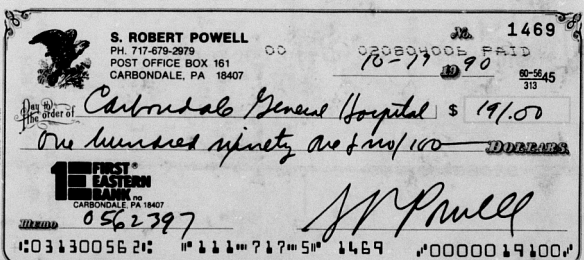 S. ROBERT POWELL
PH. 717-679-2979
POST OFFICE BOX 161
CARBONDALE, PA 18407
No. 1469
00 020804006 PAID
10-17 1990
60-5645
313
Pay to the order of Carbondale General Hospital $ 191.00
One hundred ninety one & no/100 DOLLARS
1 FIRST EASTERN BANK na
CARBONDALE, PA 18407
Memo 0562397
S R Powell
⑆031300562⑆ ⑈111⑉717⑉5⑈ 1469 ⑈0000019100⑈